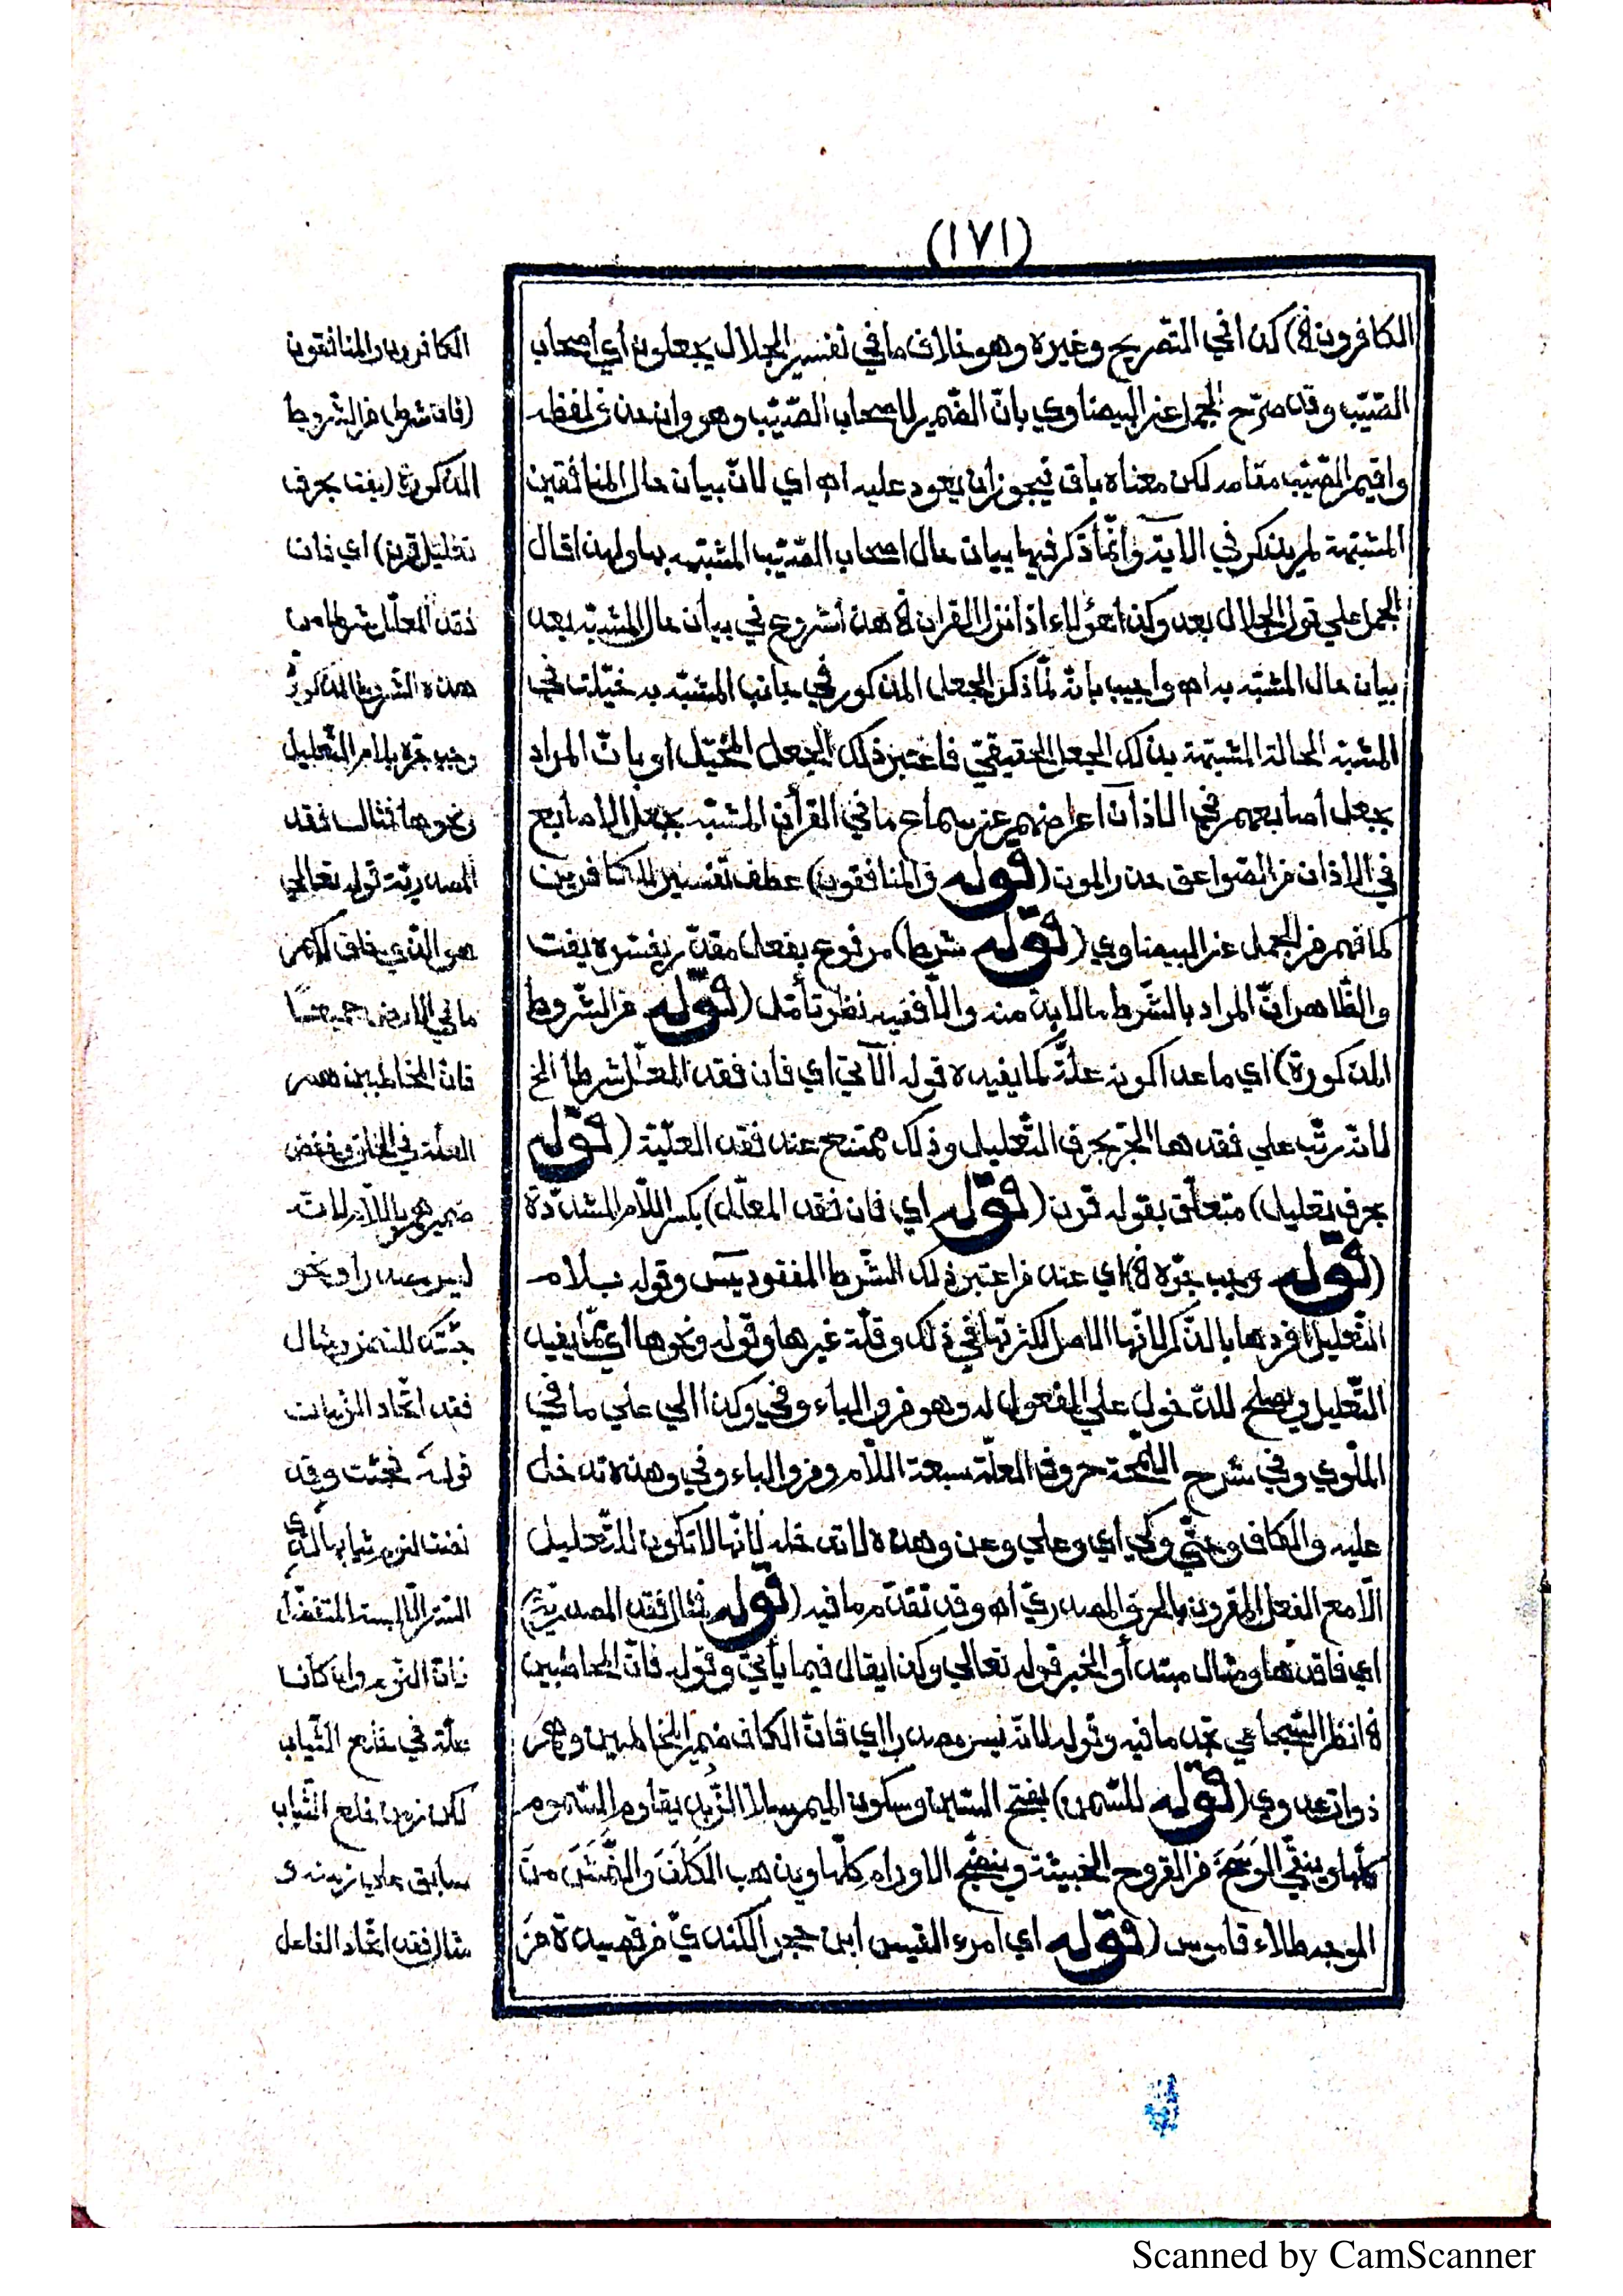 (١٧١)
الكافرون الخ) كذا في التصريح وغيره وهو خلاف ما في تفسير الجلال يجعلون أي أصحاب
الصّيّب وقد صرّح الجمل عن البيضاوي بانّ الضّمير لاصحاب الصّيّب وهو وان حذف لفظه
واقيم الصّيّب مقامه لكن معناه باق فيجوز أن يعود عليه اه اي لانّ بيان حال المنافقين
المشبّهة لم يذكر في الآية وانّما ذكر فيها بيان حال اصحاب الصّيّب المشبّه بها ولهذا قال
الجمل علي قول الجلال بعد وكذا هؤلاء اذا نزل القران الخ هذا شروع في بيان حال المشبّه بعد
بيان حال المشبّه به اه واجيب بانّه لمّا ذكر الجعل المذكور في جانب المشبّه به خيّلت في
المشبّه الحالة المشبّهة بذلك الجعل الحقيقيّ فاعتبر ذلك الجعل المخيّل او بانّ المراد
بجعل أصابعهم في الاذان اعراضهم عن سماع ما في القرأن المشبّه بجعل الاصابع
في الاذان من الصّواعق حذر الموت (قوله والمنافقون) عطف تفسير للكافرين
كما فهم من الجمل عن البيضاوي (قوله شرط) مرفوع بفعل مقدّر يفسّره يفت
والظّاهر انّ المراد بالشّرط ما لا بدّ منه والّا ففيه نظر تأمّل (قوله من الشّروط
المذكورة) اي ما عدا كونه علّة كما يفيده قوله الآتي اي فان فقد المعلّل شرطا الخ
لانّه رتّب علي فقدها الجرّ بحرف التّعليل وذلك ممتنع عند فقد العلّيّة (قوله
بحرف تعليل) متعلّق بقوله قرن (قوله اي فان فقد المعلّل) بكسر اللّام المشدّدة
(قوله وجب جرّه الخ) اي عند من اعتبر ذلك الشّرط المفقود يس وقوله بلام
التّعليل افردها بالذّكر لانّها الاصل لكثرتها في ذلك وقلّة غيرها وقوله ونحوها اي ممّا يفيد
التّعليل ويصلح للدّخول علي المفعول له وهو من والباء وفي وكذا الي علي ما في
الملّوي وفي شرح اللّمحة حروف العلّة سبعة اللّام ومن والباء وفي وهذه تدخل
عليه والكاف وحتّي وكي اي وعلي وعن وهذه لا تدخله لانّها لا تكون للتّعليل
الّا مع الفعل المقرون بالحرف المصدريّ اه وقد تقدّم ما فيه (قوله مثال فقد المصدريّة)
اي فاقدها ومثال مبتدأ والخبر قوله تعالي وكذا يقال فيما يأتي وقوله فانّ المخاطبين
الخ انظر السّجاعي تجد ما فيه وقوله لانّه ليس مصدرا اي فانّ الكاف ضمير المخاطبين وهم
ذوات عدوي (قوله للسّمن) بفتح السّين وسكون الميم سلا الزّبد يقاوم السّموم
كلّها وينقّي الوسخ من القروح الخبيثة وينضج الاورام كلّها ويذهب الكلف والنّمش من
الوجه طلاء قاموس (قوله اي امرء القيس ابن حجر الكنديّ من قصيدة من
الكافرون والمنافقون
(فان شرط) من الشّروط
المذكورة (يفت بحرف
تعليل قرن) اي فان
فقد المعلّل شرطا من
هذه الشّروط المذكورة
وجب جرّه بلام التّعليل
ونحوها فمثال فقد
المصدريّة قوله تعالي
هو الّذي خلق لكم
ما في الارض جميعًا
فانّ المخاطبين هم
العلّة في الخلق وخفض
ضميرهم باللّام لانّه
ليس مصدرا ونحو
جئتك للسّمن ومثال
فقد اتّحاد الزّمان
قوله فجئت وقد
نضت لنوم ثيابها لدي
السّتر الّا لبسة المتفضّل
فانّ النّوم وان كان
علّة في خلع الثّياب
لكن زمن خلع الثّياب
سابق علي زمنه و
مثال فقد اتّحاد الفاعل
Scanned by CamScanner